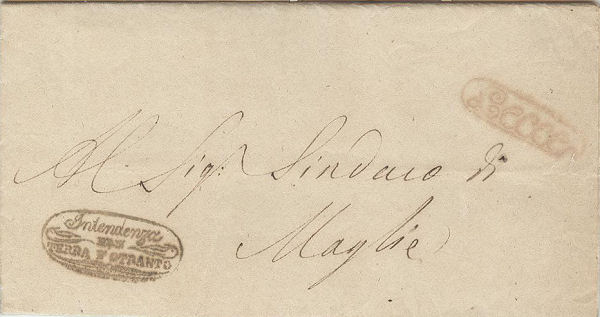 Lecce
Al Sigr. Sindaco di
Maglie
Intendenza
DI
TERRA D'OTRANTO